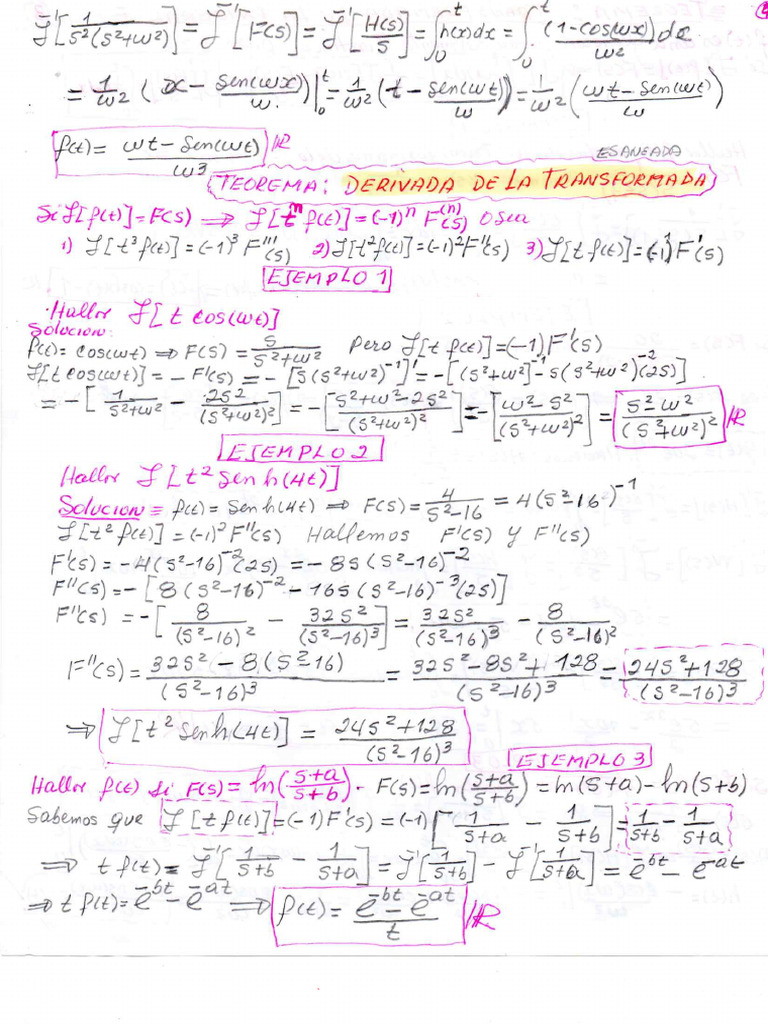 ℒ⁻¹[1/(s²(s²+ω²))] = ℒ⁻¹[F(s)] = ℒ⁻¹[H(s)/s] = ∫₀ᵗ h(x)dx = ∫₀ᵗ (1-cos(ωx))/ω² dx
= 1/ω² (x - sen(ωx)/ω)|₀ᵗ = 1/ω² (t - sen(ωt)/ω) = 1/ω² ((ωt - sen(ωt))/ω)
f(t) = (ωt - sen(ωt))/ω³ //R
ESANEADA
TEOREMA: DERIVADA DE LA TRANSFORMADA
Si ℒ[f(t)] = F(s) ⟹ ℒ[tⁿ f(t)] = (-1)ⁿ F⁽ⁿ⁾(s) O sea
1) ℒ[t³f(t)] = (-1)³ F'''(s) 2) ℒ[t²f(t)] = (-1)² F''(s) 3) ℒ[t f(t)] = (-1)¹ F'(s)
EJEMPLO 1
Hallar ℒ[t cos(ωt)]
Solucion:
f(t) = cos(ωt) ⟹ F(s) = s/(s²+ω²) Pero ℒ[t f(t)] = (-1) F'(s)
ℒ[t cos(ωt)] = -F'(s) = -[s(s²+ω²)⁻¹]' = -[(s²+ω²]⁻¹ - s(s²+ω²)⁻²(2s)]
= -[1/(s²+ω²) - 2s²/(s²+ω²)²] = -[(s²+ω²-2s²)/(s²+ω²)²] = -[(ω²-s²)/(s²+ω²)²] = (s²-ω²)/(s²+ω²)² //R
EJEMPLO 2
Hallar ℒ[t² senh(4t)]
Solucion = f(t) = senh(4t) ⟹ F(s) = 4/(s²-16) = 4(s²-16)⁻¹
ℒ[t² f(t)] = (-1)² F''(s) Hallemos F'(s) y F''(s)
F'(s) = -4(s²-16)⁻²(2s) = -8s(s²-16)⁻²
F''(s) = -[8(s²-16)⁻² - 16s(s²-16)⁻³(2s)]
F''(s) = -[8/(s²-16)² - 32s²/(s²-16)³] = 32s²/(s²-16)³ - 8/(s²-16)²
F''(s) = (32s² - 8(s²-16))/(s²-16)³ = (32s²-8s²+128)/(s²-16)³ = (24s²+128)/(s²-16)³
⟹ ℒ[t² senh(4t)] = (24s²+128)/(s²-16)³
EJEMPLO 3
Hallar f(t) si F(s) = ln((s+a)/(s+b)). F(s) = ln((s+a)/(s+b)) = ln(s+a) - ln(s+b)
Sabemos que ℒ[t f(t)] = (-1)F'(s) = (-1)[1/(s+a) - 1/(s+b)] = 1/(s+b) - 1/(s+a)
⟹ t f(t) = ℒ⁻¹[1/(s+b) - 1/(s+a)] = ℒ⁻¹[1/(s+b)] - ℒ⁻¹[1/(s+a)] = e⁻ᵇᵗ - e⁻ᵃᵗ
⟹ t f(t) = e⁻ᵇᵗ - e⁻ᵃᵗ ⟹ f(t) = (e⁻ᵇᵗ - e⁻ᵃᵗ)/t //R